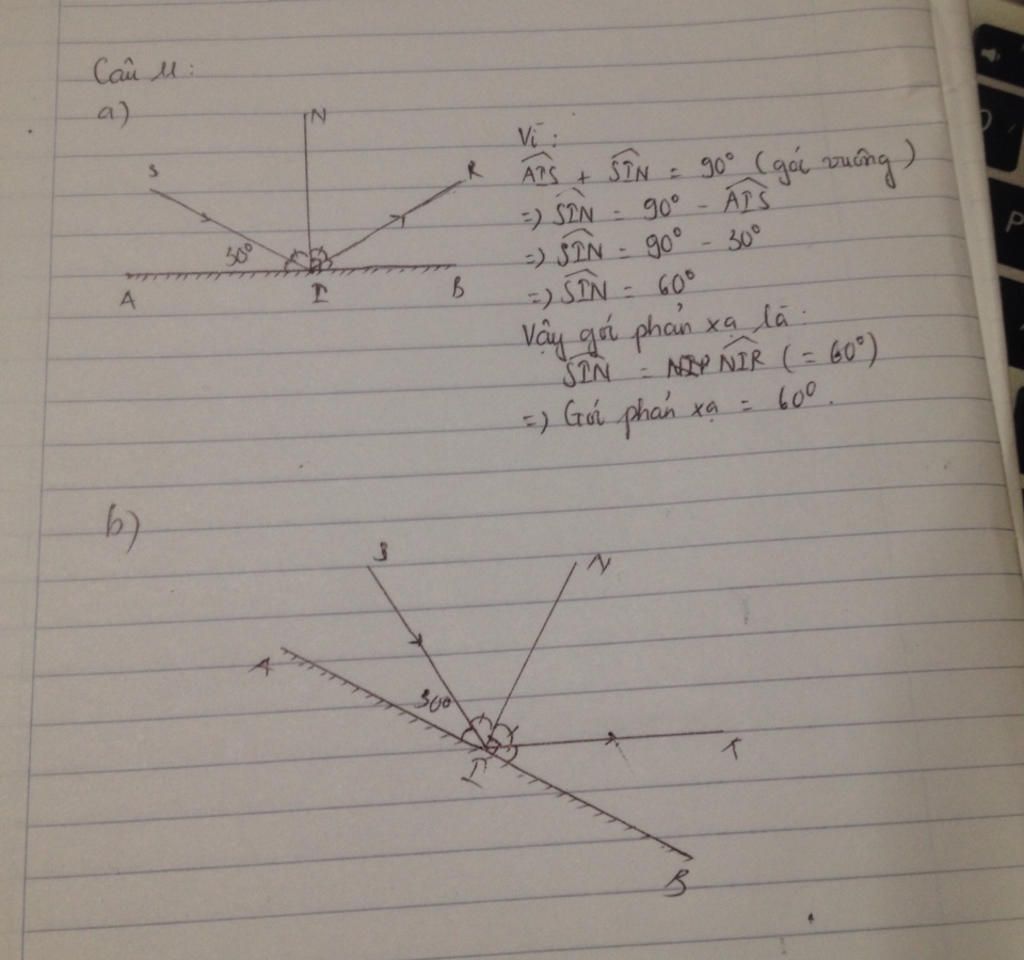 Câu 11:
a)
N
S
R
30°
A
I
B
Vì:
AIS + SIN = 90° (gói vuông)
=) SIN = 90° - AIS
=) SIN = 90° - 30°
=) SIN = 60°
Vậy gói phản xạ là:
SIN = NIR (= 60°)
=) Gói phản xạ = 60°.
b)
S
N
A
30°
I
B